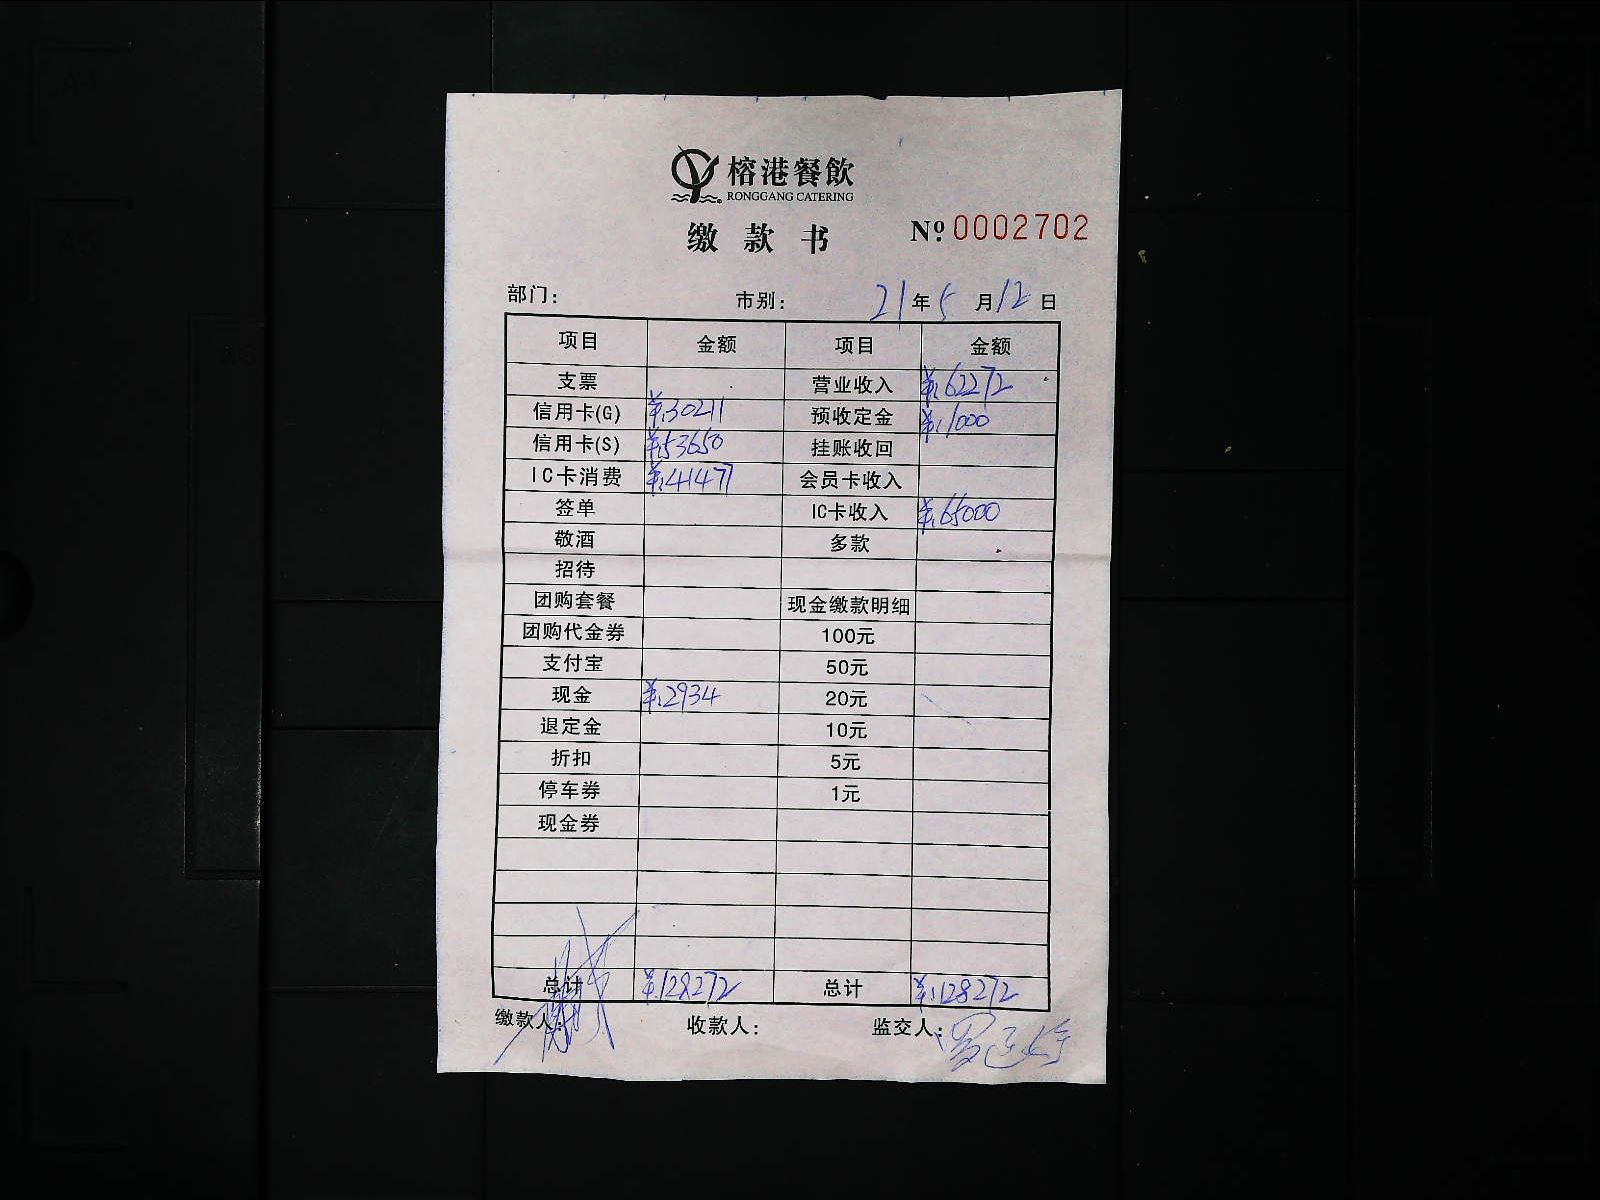 榕港餐飲
RONGGANG CATERING
缴款书 № 0002702
部门： 市别： 21年5月12日
项目 金额 项目 金额
支票 营业收入 ¥:62272
信用卡(G) ¥:30211 预收定金 ¥:1000
信用卡(S) ¥:53650 挂账收回
IC卡消费 ¥:41477 会员卡收入
签单 IC卡收入 ¥:65000
敬酒 多款
招待
团购套餐 现金缴款明细
团购代金券 100元
支付宝 50元
现金 ¥:2934 20元
退定金 10元
折扣 5元
停车券 1元
现金券
总计 ¥:128272 总计 ¥:128272
缴款人： 收款人： 监交人：